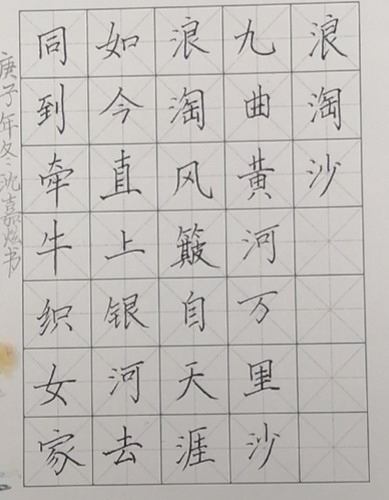 浪淘沙
九曲黄河万里沙
浪淘风簸自天涯
如今直上银河去
同到牵牛织女家
庚子年冬沈嘉炫书